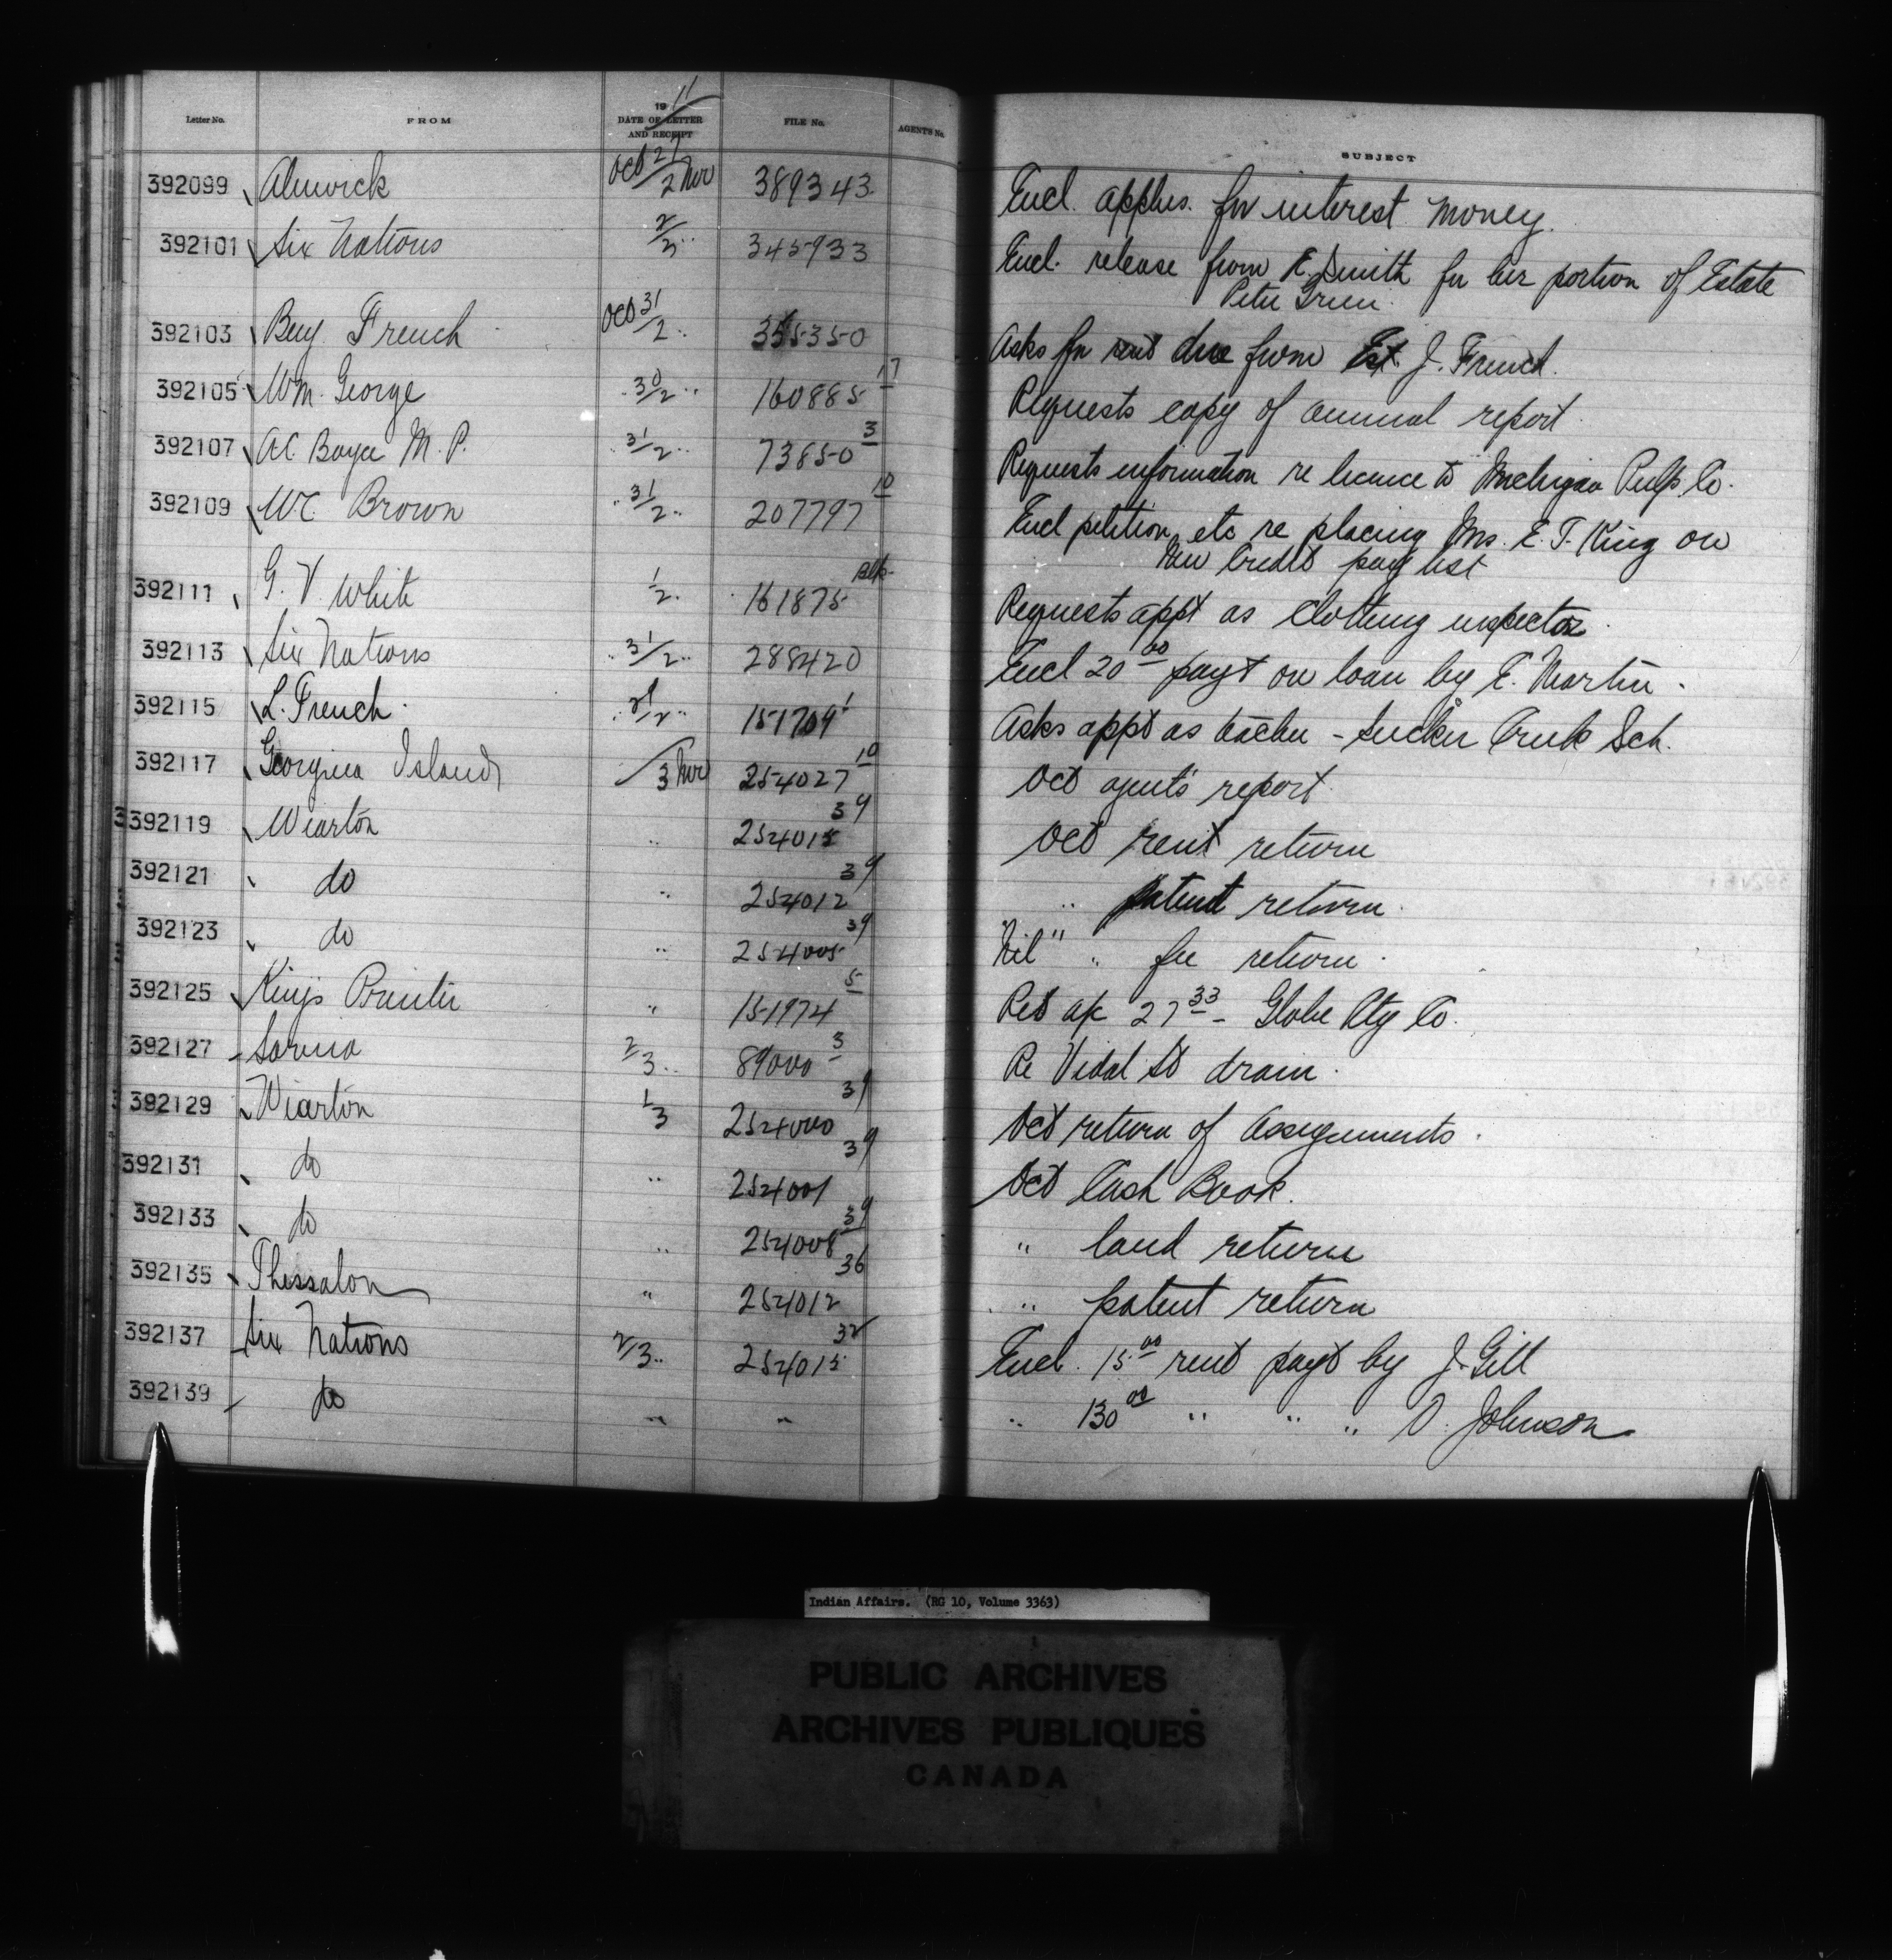 Letter No. FROM 1911 DATE OF LETTER AND RECEIPT FILE No. AGENTS No. SUBJECT
392099 Alnwick Oct 27/2 Nov 389343 Encl. applns. for interest money.
392101 Six Nations 2/3 " 345933 Encl. release from E. Smith for her portion of Estate
Peter Green.
392103 Benj. French Oct 31/2 " 355350 Asks for rent due from Est. J. French.
392105 Wm. George " 30/2 " 160885 17 Requests copy of annual report.
392107 A.C. Boyce M.P. " 31/2 " 73850 3 Requests information re licence to Michigan Pulp Co.
392109 W.C. Brown " 31/2 " 207797 10 Encl petition, etc re placing Mrs. E. T. King on
New Credit pay list
392111 G. V. White 1/2 " 161875 Blk. Requests appt as clothing inspector.
392113 Six Nations " 31/2 " 288420 Encl 20 00 payt on loan by E. Martin.
392115 L. French. " /2 " 151709 1 Asks appt as teacher - Sucker Creek Sch.
392117 Georgina Island /3 Nov 254027 10 Oct agent's report.
392119 Wiarton " 254015 39 Oct rent return
392121 do " 254012 39 " patent return.
392123 do " 254005 39 "Nil" " fee return.
392125 Kings Printer " 151974 5 Ret a/c 27 33 - Globe Ptg Co.
392127 Sarnia 2/3 " 89000 3 Re Vidal St drain.
392129 Wiarton 1/3 254000 39 Oct return of assignments.
392131 do " 254001 39 Oct Cash Book.
392133 do " 254008 39 " land return
392135 Thessalon " 254012 36 " patent return
392137 Six Nations 2/3 " 254015 32 Encl. 15 00 rent payt by J. Gill
392139 do " " " 130 00 " " " D. Johnson
Indian Affairs. (RG 10, Volume 3363)
PUBLIC ARCHIVES
ARCHIVES PUBLIQUES
CANADA